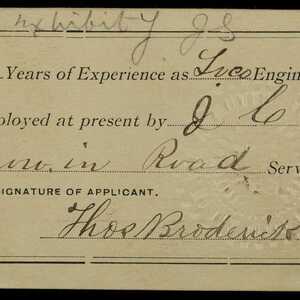 Exhibit Y J S
Years of Experience as Loco Engin
ployed at present by J C
in Road Serv
SIGNATURE OF APPLICANT.
Thos Broderick